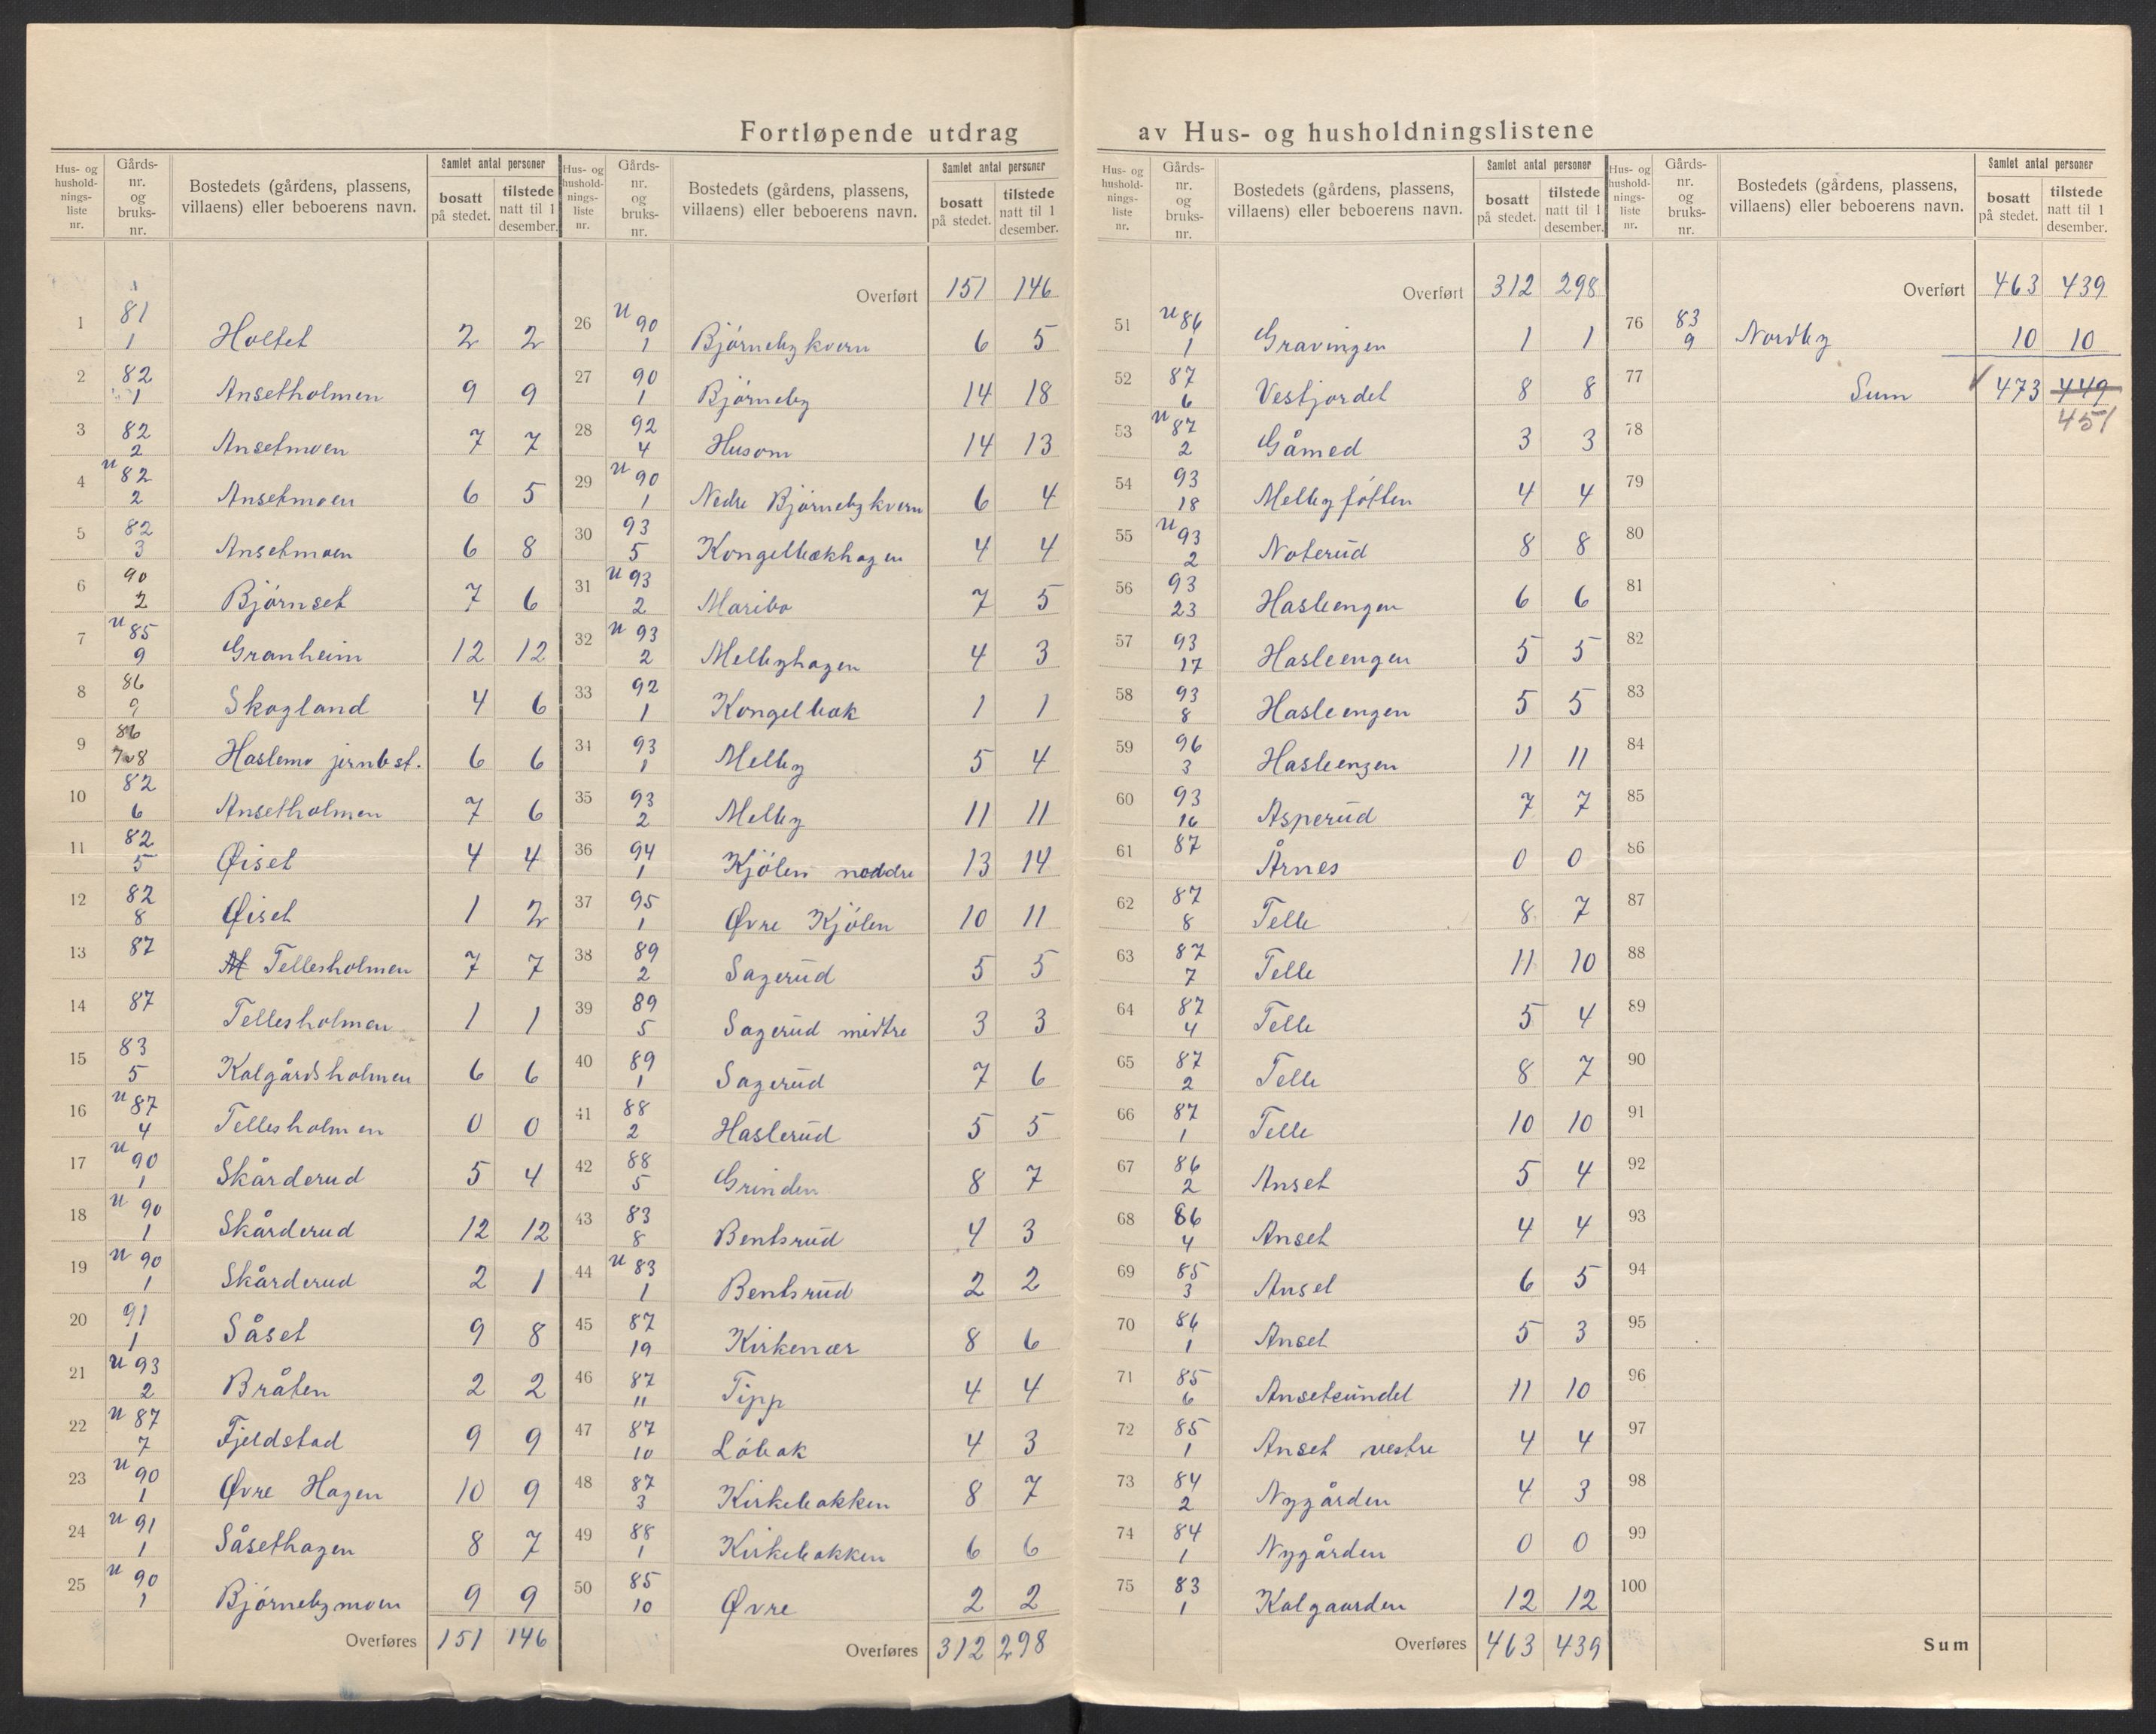 Fortløpende utdrag av Hus- og husholdningslistene
Hus- og hushold-nings-liste nr. | Gårds-nr. og bruks-nr. | Bostedets (gårdens, plassens, villaens) eller beboerens navn. | Samlet antal personer | bosatt på stedet. | tilstede natt til 1 desember.
1 81 1 Holtet 2 2
2 82 1 Ansetholmen 9 9
3 82 2 Ansetmoen 7 7
4 u 82 2 Ansetmoen 6 5
5 82 3 Ansetmoen 6 8
6 90 2 Bjørnset 7 6
7 u 85 9 Granheim 12 12
8 86 9 Skogland 4 6
9 86 7 8 Haslemo jernbst. 6 6
10 82 6 Ansetholmen 7 6
11 82 5 Øiset 4 4
12 82 8 Øiset 1 2
13 87 Tellesholmen 7 7
14 87 Tellesholmen 1 1
15 83 5 Kalgårdsholmen 6 6
16 u 87 4 Tellesholmen 0 0
17 u 90 1 Skårderud 5 4
18 u 90 1 Skårderud 12 12
19 u 90 1 Skårderud 2 1
20 91 1 Såset 9 8
21 u 93 2 Bråten 2 2
22 u 87 7 Fjeldstad 9 9
23 u 90 1 Øvre Hagen 10 9
24 u 91 1 Såsethagen 8 7
25 u 90 1 Bjørnebymoen 9 9
Overføres 151 146
Hus- og hushold-nings-liste nr. | Gårds-nr. og bruks-nr. | Bostedets (gårdens, plassens, villaens) eller beboerens navn. | Samlet antal personer | bosatt på stedet. | tilstede natt til 1 desember.
Overført 151 146
26 u 90 1 Bjørnebykvern 6 5
27 90 1 Bjørneby 14 18
28 92 4 Husom 14 13
29 u 90 1 Nedre Bjørnebykvern 6 4
30 93 5 Kongelbækhagen 4 4
31 u 93 2 Maribo 7 5
32 u 93 2 Melbyhagen 4 3
33 92 1 Kongelbæk 1 1
34 93 1 Melby 5 4
35 93 2 Melby 11 11
36 94 1 Kjølen neddre 13 14
37 95 1 Øvre Kjølen 10 11
38 89 2 Sagerud 5 5
39 89 5 Sagerud midtre 3 3
40 89 1 Sagerud 7 6
41 88 2 Haslerud 5 5
42 88 5 Grinden 8 7
43 83 8 Bentsrud 4 3
44 u 83 1 Bentsrud 2 2
45 87 19 Kirkenær 8 6
46 87 11 Tipp 4 4
47 87 10 Løbak 4 3
48 87 3 Kirkebakken 8 7
49 88 1 Kirkebakken 6 6
50 85 10 Øvre 2 2
Overføres 312 298
Hus- og hushold-nings-liste nr. | Gårds-nr. og bruks-nr. | Bostedets (gårdens, plassens, villaens) eller beboerens navn. | Samlet antal personer | bosatt på stedet. | tilstede natt til 1 desember.
Overført 312 298
51 u 86 1 Gravingen 1 1
52 87 6 Vestjordet 8 8
53 u 87 2 Gåmed 3 3
54 93 18 Melbyføtten 4 4
55 u 93 2 Noterud 8 8
56 93 23 Hasleengen 6 6
57 93 17 Hasleengen 5 5
58 93 8 Hasleengen 5 5
59 96 3 Hasleengen 11 11
60 93 16 Asperud 7 7
61 87 Årnes 0 0
62 87 8 Telle 8 7
63 87 7 Telle 11 10
64 87 4 Telle 5 4
65 87 2 Telle 8 7
66 87 1 Telle 10 10
67 86 2 Anset 5 4
68 86 4 Anset 4 4
69 85 3 Anset 6 5
70 86 1 Anset 5 3
71 85 6 Ansetsundet 11 10
72 85 1 Anset vestre 4 4
73 84 2 Nygården 4 3
74 84 1 Nygården 0 0
75 83 1 Kalgaarden 12 12
Overføres 463 439
Hus- og hushold-nings-liste nr. | Gårds-nr. og bruks-nr. | Bostedets (gårdens, plassens, villaens) eller beboerens navn. | Samlet antal personer | bosatt på stedet. | tilstede natt til 1 desember.
Overført 463 439
76 83 9 Nordby 10 10
77 Sum 473 449
78 451
79
80
81
82
83
84
85
86
87
88
89
90
91
92
93
94
95
96
97
98
99
100
Sum